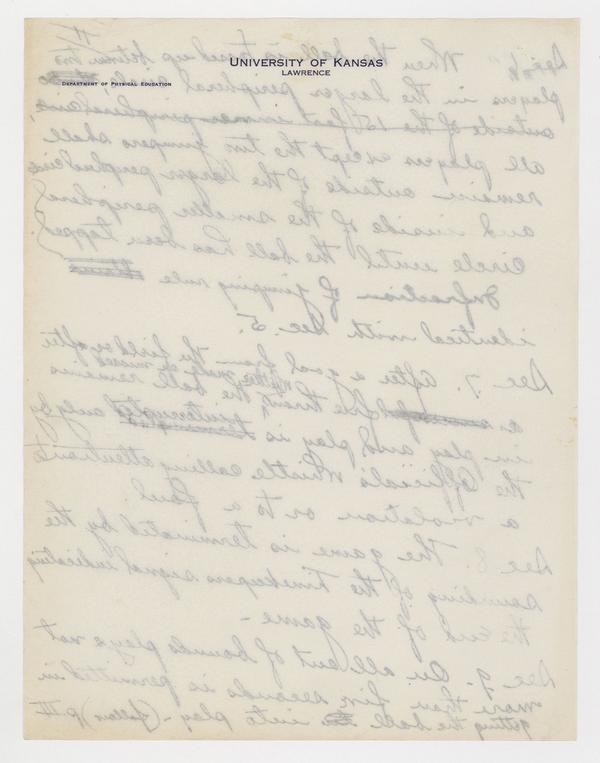 UNIVERSITY OF KANSAS
LAWRENCE
DEPARTMENT OF PHYSICAL EDUCATION
11
When the ball is tossed up between two
players in the larger peripheral circle
outside of the 15 foot inner peripheral circle,
all players except the two jumpers shall
remain outside of the larger peripheral circle
and inside of the smaller
circle until the ball has been tapped.
Infraction of jumping rule
identical with Sec. 5.
Sec 7. After a goal from the field or after
free throw, the ball remains
in play and play is interrupted only by
the Officials whistle calling attention to
a violation or to a foul.
Sec 8. The game is terminated by the
sounding of the timekeepers signal indicating
the end of the game -
Sec 9. On all out of bounds plays not
more than five seconds is permitted in
getting the ball into play -